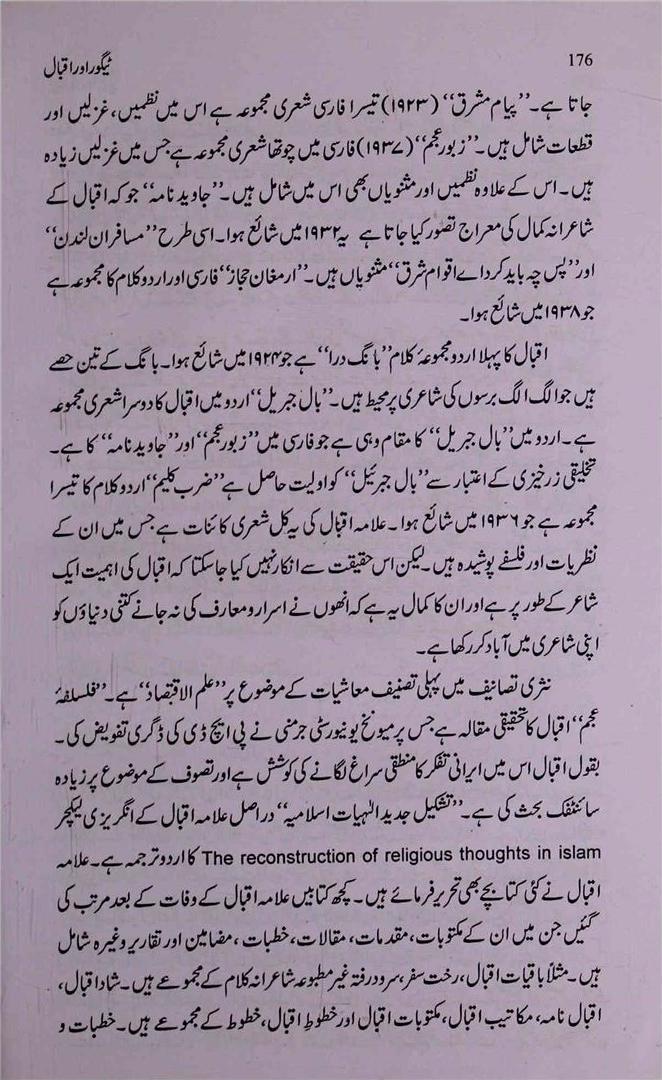 176
ٹیگور اور اقبال
جاتا ہے۔ ’’پیام مشرق‘‘ (۱۹۲۳) تیسرا فارسی شعری مجموعہ ہے اس میں نظمیں، غزلیں اور
قطعات شامل ہیں۔ ’’زبور عجم‘‘ (۱۹۳۷) فارسی میں چوتھا شعری مجموعہ ہے جس میں غزلیں زیادہ
ہیں۔ اس کے علاوہ نظمیں اور مثنویاں بھی اس میں شامل ہیں۔ ’’جاوید نامہ‘‘ جو کہ اقبال کے
شاعرانہ کمال کی معراج تصوّر کیا جاتا ہے یہ ۱۹۳۲ میں شائع ہوا۔ اسی طرح ’’مسافران لندن‘‘
اور ’’پس چہ باید کرد اے اقوام شرق‘‘ مثنویاں ہیں۔ ’’ارمغان حجاز‘‘ فارسی اور اردو کلام کا مجموعہ ہے
جو ۱۹۳۸ میں شائع ہوا۔
اقبال کا پہلا اردو مجموعۂ کلام ’’بانگ درا‘‘ ہے جو ۱۹۲۴ میں شائع ہوا۔ بانگ کے تین حصے
ہیں جو الگ الگ برسوں کی شاعری پر محیط ہیں۔ ’’بال جبریل‘‘ اردو میں اقبال کا دوسرا شعری مجموعہ
ہے۔ اردو میں ’’بال جبریل‘‘ کا مقام وہی ہے جو فارسی میں ’’زبور عجم‘‘ اور ’’جاوید نامہ‘‘ کا ہے۔
تخلیقی زرخیزی کے اعتبار سے ’’بال جبرئیل‘‘ کو اولیت حاصل ہے ’’ضرب کلیم‘‘ اردو کلام کا تیسرا
مجموعہ ہے جو ۱۹۳۶ میں شائع ہوا۔ علامہ اقبال کی یہ کل شعری کائنات ہے جس میں ان کے
نظریات اور فلسفے پوشیدہ ہیں۔ لیکن اس حقیقت سے انکار نہیں کیا جا سکتا کہ اقبال کی اہمیت ایک
شاعر کے طور پر ہے اور ان کا کمال یہ ہے کہ انھوں نے اسرار و معارف کی نہ جانے کتنی دنیاؤں کو
اپنی شاعری میں آباد کر رکھا ہے۔
نثری تصانیف میں پہلی تصنیف معاشیات کے موضوع پر ’’علم الاقتصاد‘‘ ہے۔ ’’فلسفۂ
عجم‘‘ اقبال کا تحقیقی مقالہ ہے جس پر میونخ یونیورسٹی جرمنی نے پی ایچ ڈی کی ڈگری تفویض کی۔
بقول اقبال اس میں ایرانی تفکر کا منطقی سراغ لگانے کی کوشش ہے اور تصوف کے موضوع پر زیادہ
سائنٹفک بحث کی ہے۔ ’’تشکیل جدید الہٰیات اسلامیہ‘‘ دراصل علامہ اقبال کے انگریزی لیکچر
The reconstruction of religious thoughts in islam کا اردو ترجمہ ہے۔ علامہ
اقبال نے کئی کتابچے بھی تحریر فرمائے ہیں۔ کچھ کتابیں علامہ اقبال کے وفات کے بعد مرتب کی
گئیں جن میں ان کے مکتوبات، مقدمات، مقالات، خطبات، مضامین اور تقاریر وغیرہ شامل
ہیں۔ مثلاً باقیات اقبال، رخت سفر، سرود رفتہ غیر مطبوعہ شاعرانہ کلام کے مجموعے ہیں۔ شاد اقبال،
اقبال نامہ، مکاتیب اقبال، مکتوبات اقبال اور خطوطِ اقبال، خطوط کے مجموعے ہیں۔ خطبات و